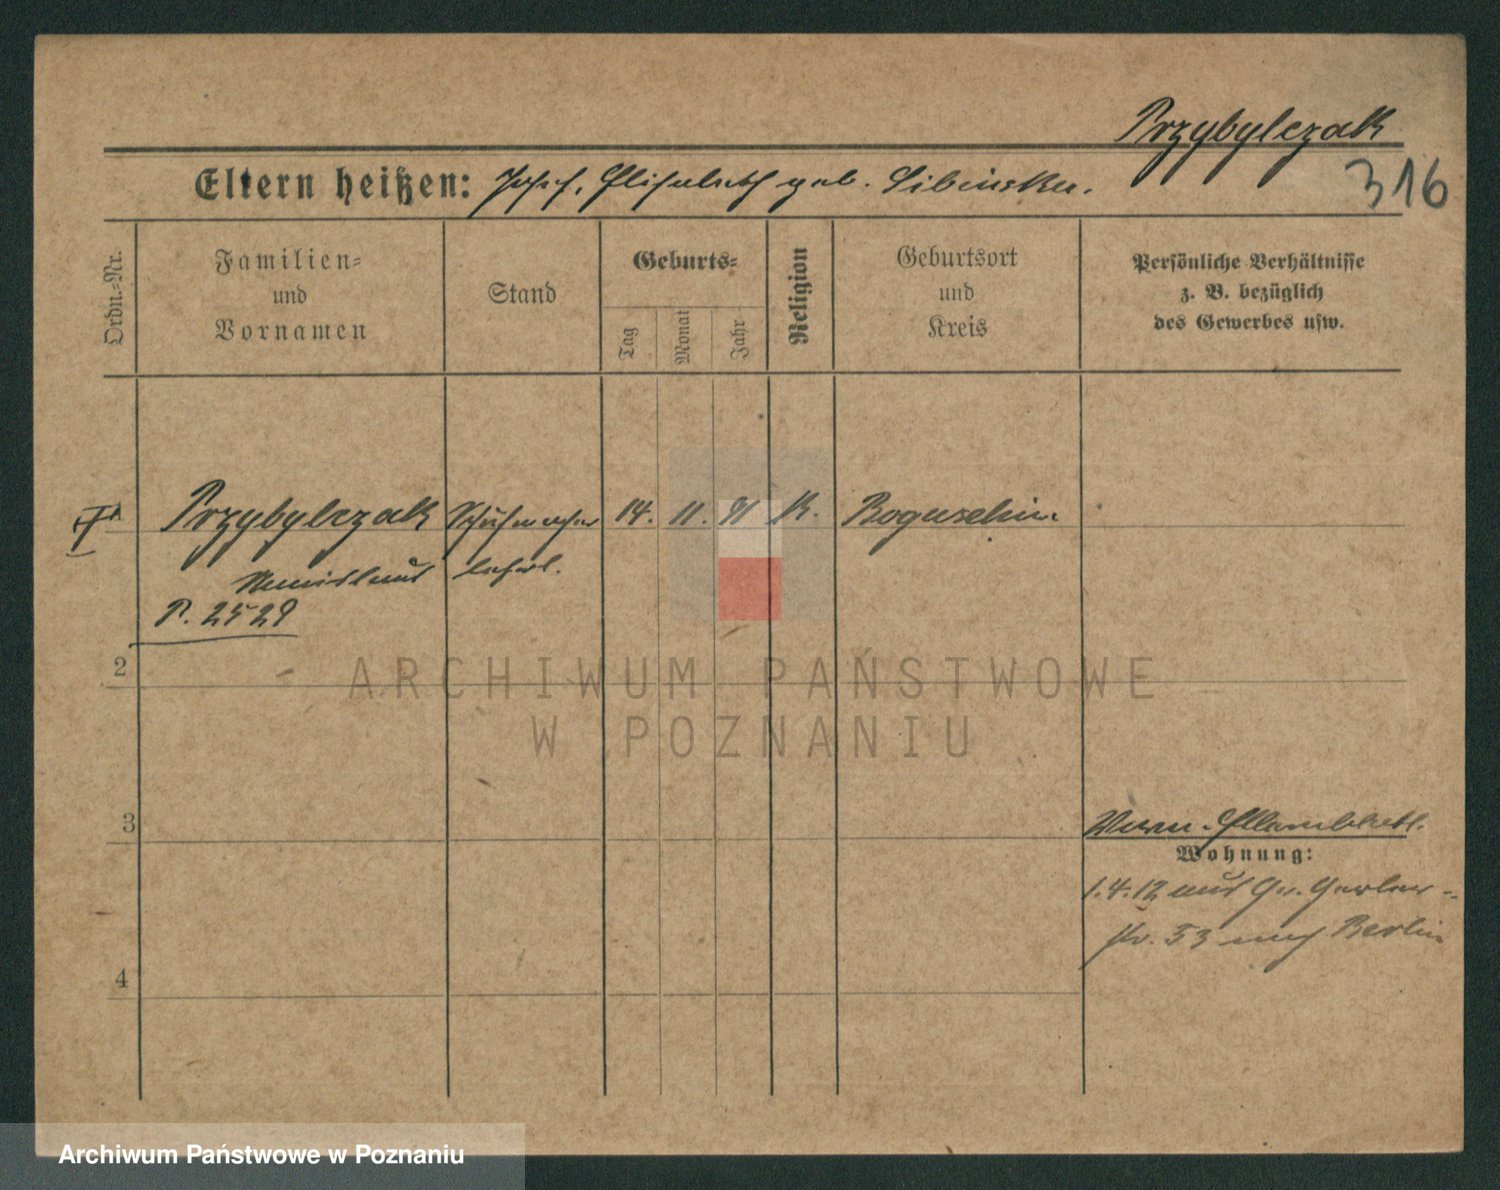 Przybylczak
Eltern heißen: Josef, Elisabeth geb. Libinska.
316
Ordn.-Nr.
Familien-
und
Vornamen
Stand
Geburts-
Tag
Monat
Jahr
Religion
Geburtsort
und
Kreis
Persönliche Verhältnisse
z. B. bezüglich
des Gewerbes usw.
Przybylczak Schuhmacher 14. 11. 91 K. Boguschin.
lehrl.
P. 2528
2
ARCHIWUM PAŃSTWOWE
W POZNANIU
3
Wohnung:
1.4.12 aus Gr. Gerber-
str. 53 nach Berlin
4
Archiwum Państwowe w Poznaniu